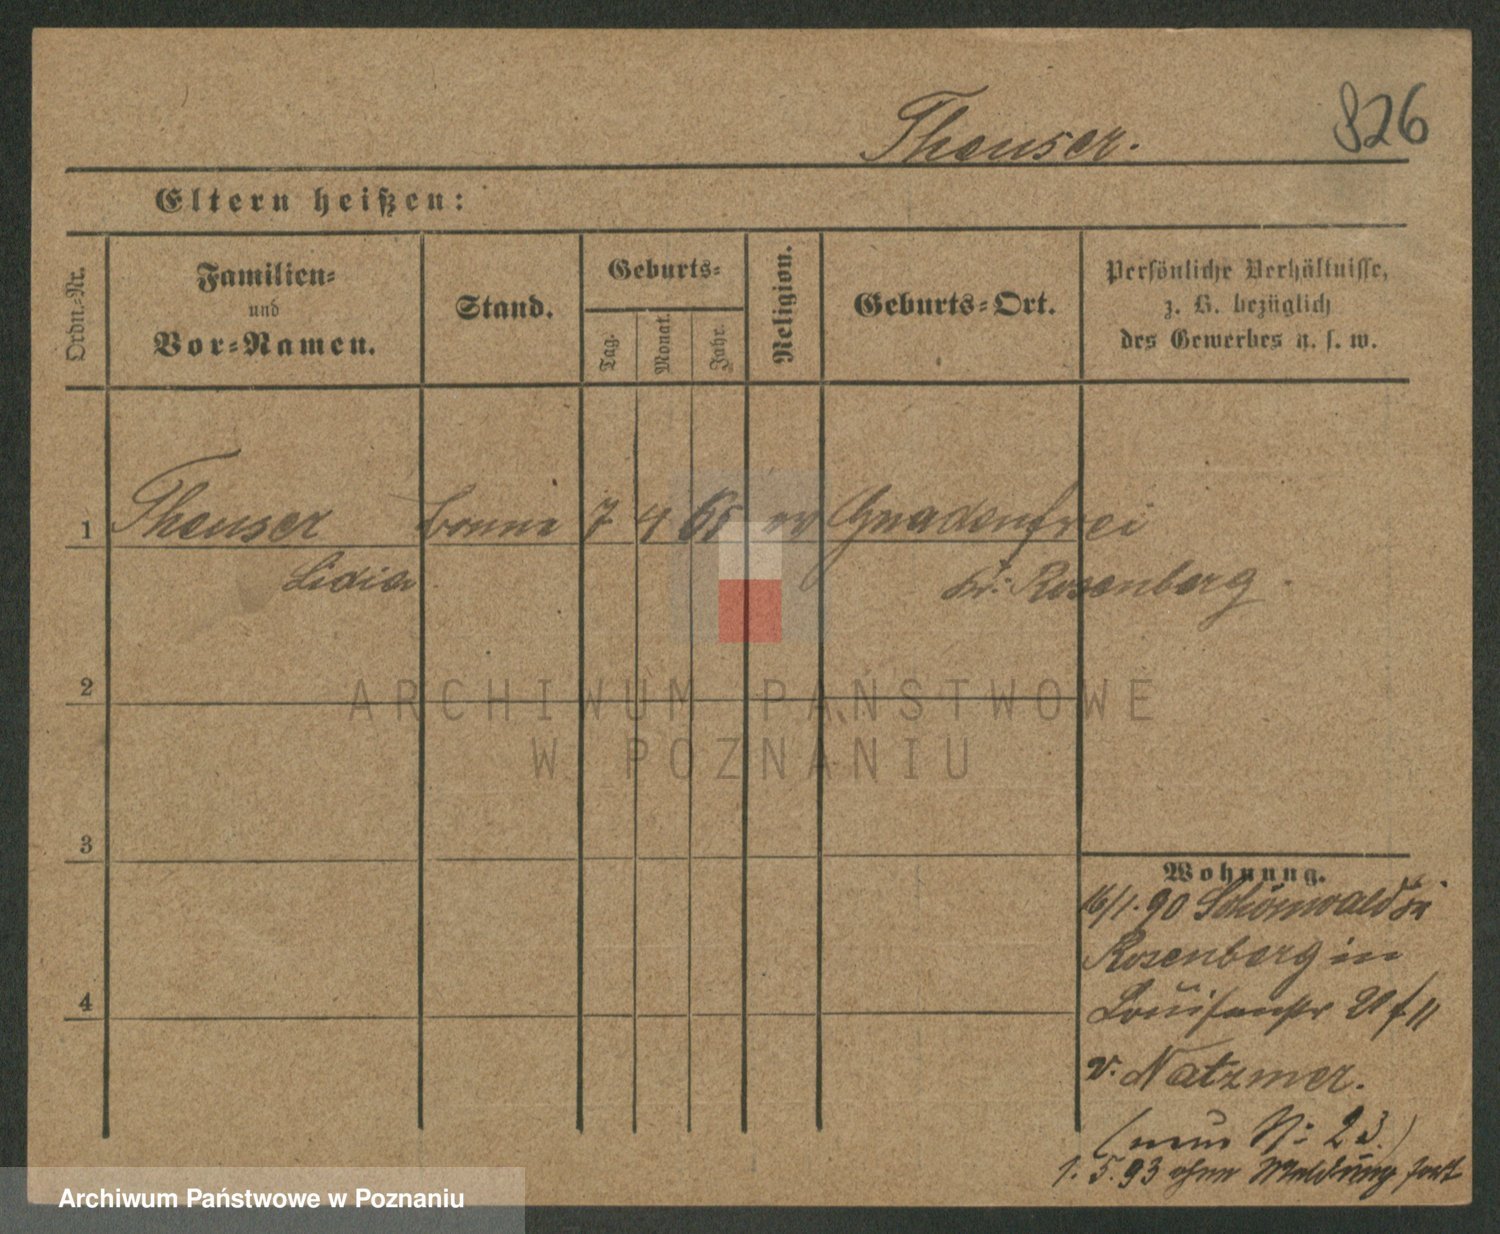 826
Theuser.
Eltern heißen:
Ordn.-Nr.
Familien-
und
Vor-Namen.
Stand.
Geburts-
Tag.
Monat.
Jahr.
Religion.
Geburts-Ort.
Persönliche Verhältnisse,
z. B. bezüglich
des Gewerbes u. s. w.
1 Theuser bonne 7 4 65 ev Gnadenfrei
Lidia Kr: Rosenberg.
2
ARCHIWUM PAŃSTWOWE
W POZNANIU
3
Wohnung.
16/1.90 Schönwald
Rosenberg in
4
Louisenstr 21 f II
v. Natzmer.
(neue N: 23.)
1.5.93 ohne Meldung fort
Archiwum Państwowe w Poznaniu